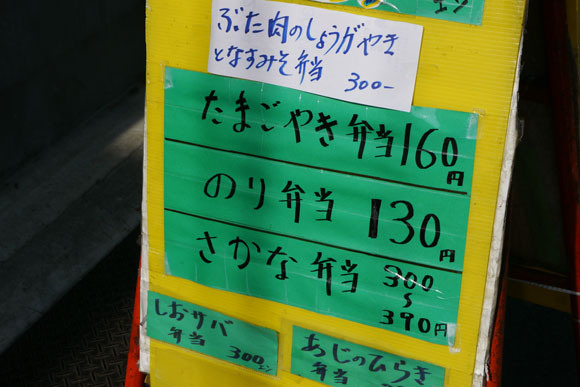 ぶた肉のしょうがやき
となすみそ弁当 300-
たまごやき弁当160円
のり弁当 130円
さかな弁当 300
〜
390円
しおサバ
弁当 300エン
あじのひらき
弁当